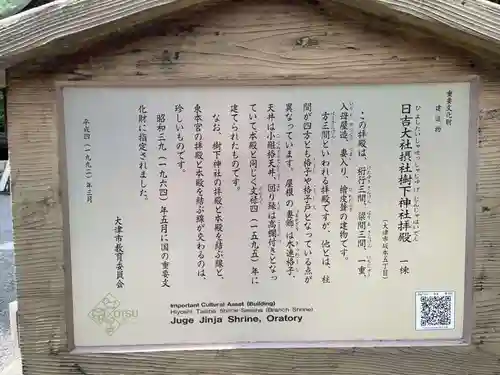 重要文化財
建造物
ひよしたいしゃせっしゃじゅげじんじゃはいでん
日吉大社摂社樹下神社拝殿　一棟
（大津市坂本五丁目）
この拝殿は、桁行三間、梁間三間、一重、
入母屋造、妻入り、檜皮葺の建物です。
方三間といわれる拝殿ですが、他とは、柱
間が四方とも格子や格子戸となっている点が
異なっています。屋根の妻飾は木連格子、
天井は小組格天井、回り縁は高欄付きとなっ
ていて本殿と同じく文禄四（一五九五）年に
建てられたものです。
なお、樹下神社の拝殿と本殿を結ぶ線と、
東本宮の拝殿と本殿を結ぶ線が交わるのは、
珍しいものです。
昭和三九（一九六四）年五月に国の重要文
化財に指定されました。
大津市教育委員会
平成四（一九九二）年三月
OTSU
Important Cultural Asset (Building)
Hiyoshi Taisha Shrine Sessha (Branch Shrine)
Juge Jinja Shrine, Oratory